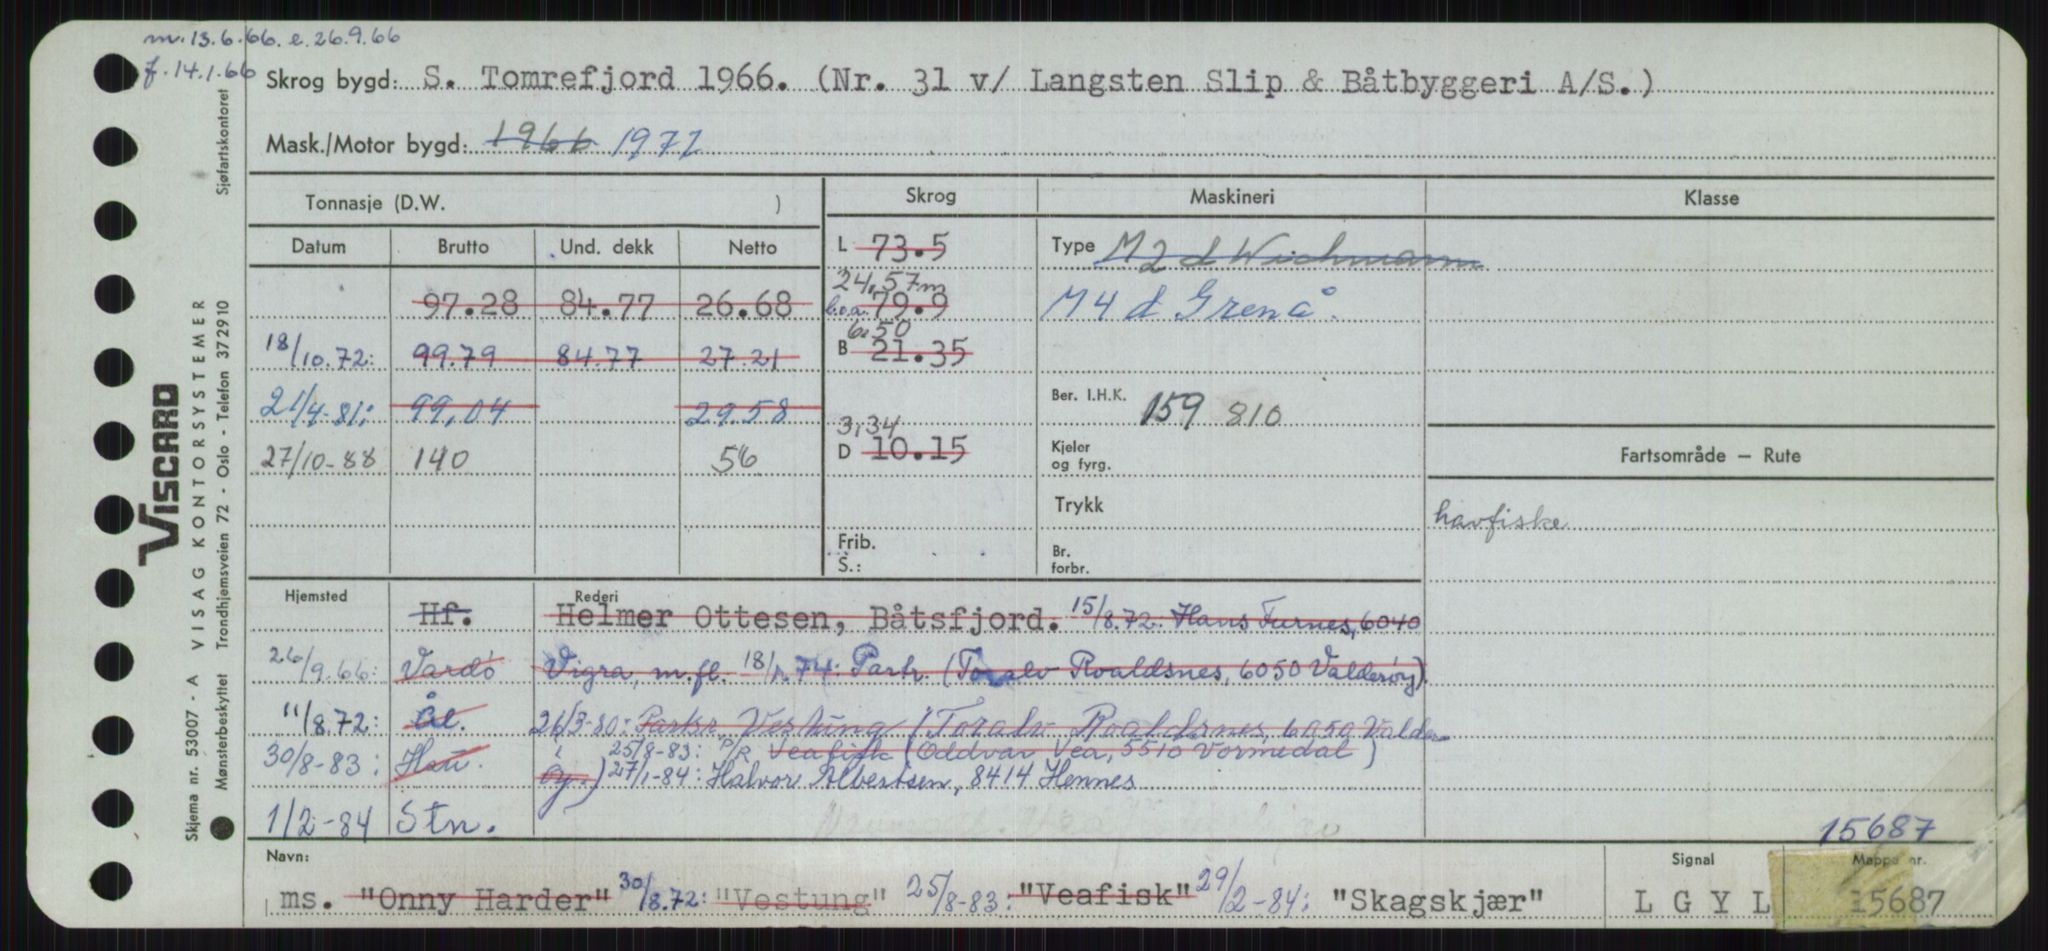 m. 13.6.66. e. 26.9.66
f. 14.1.66
Skrog bygd: S. Tomrefjord 1966. (Nr. 31 v/ Langsten Slip & Båtbyggeri A/S.)
Mask./Motor bygd: 1966 1971
Tonnasje (D.W. )
Skrog
Maskineri
Klasse
Datum Brutto Und. dekk Netto
L 73.5
Type M2 d Wichmann
24,57m
97.28 84.77 26.68
b.o.a. 79.9
M4 d Grenå.
6,50
18/10.72: 99.79 84.77 27.21
B 21.35
21/4-81: 99,04 29.58
Ber. I.H.K. 159 810
3,34
27/10-88 140 56
D 10.15
Kjeler
og fyrg.
Fartsområde — Rute
Trykk
havfiske
Frib.
S.:
Br.
forbr.
Hjemsted
Rederi
Hf. Helmer Ottesen, Båtsfjord. 15/8.72: Hans Furnes, 6040
26/9.66: Vardö Vigra, m.fl. 74: Partr. (Toralv Roaldsnes, 6050 Valderøy).
11/8.72: Ål. 26/3-80: Partsr Vestung (Toralv Roaldsnes, 6050 Valder
25/8-83: P/R Veafisk (Oddvar Vea, 5510 Vormedal)
30/8-83: Hau. øy.) 27/1-84: Halvor Albertsen, 8414 Hennes
1/2-84 Stn.
15687
Navn:
Signal
Mappe nr.
ms. "Onny Harder" 30/8.72: "Vestung" 25/8-83: "Veafisk" 29/2-84: "Skagskjær" L G Y L 15687
VISCARD
VISAG KONTORSYSTEMER
Skjema nr. 53007 - A
Mønsterbeskyttet Trondhjemsveien 72 - Oslo - Telefon 37 29 10 Sjøfartskontoret